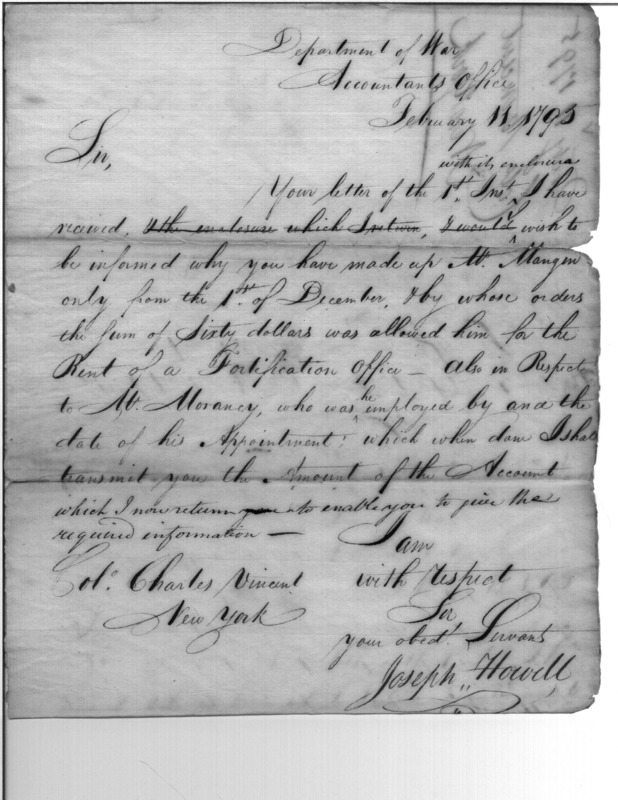 Department of War
Accountants Office
February 11 1795
Sir,
with its enclosure
Your letter of the 1st. Inst. ^ I have
received, & the enclosure which I return, & would ^ wish to
be informed why you have made up Mr. Mangin
only from the 1st. of December, & by whose orders
the sum of Sixty dollars was allowed him for the
Rent of a Fortification Office — also in Respect
to Mr. Morancy, who was he employed by and the
date of his Appointment: which when done I shall
transmit you the Amount of the Account
which I now return you to enable you to give the
required information —
I am
with respect
Sir
your obedt. Servant
Joseph Howell
Colo. Charles Vincent
New York